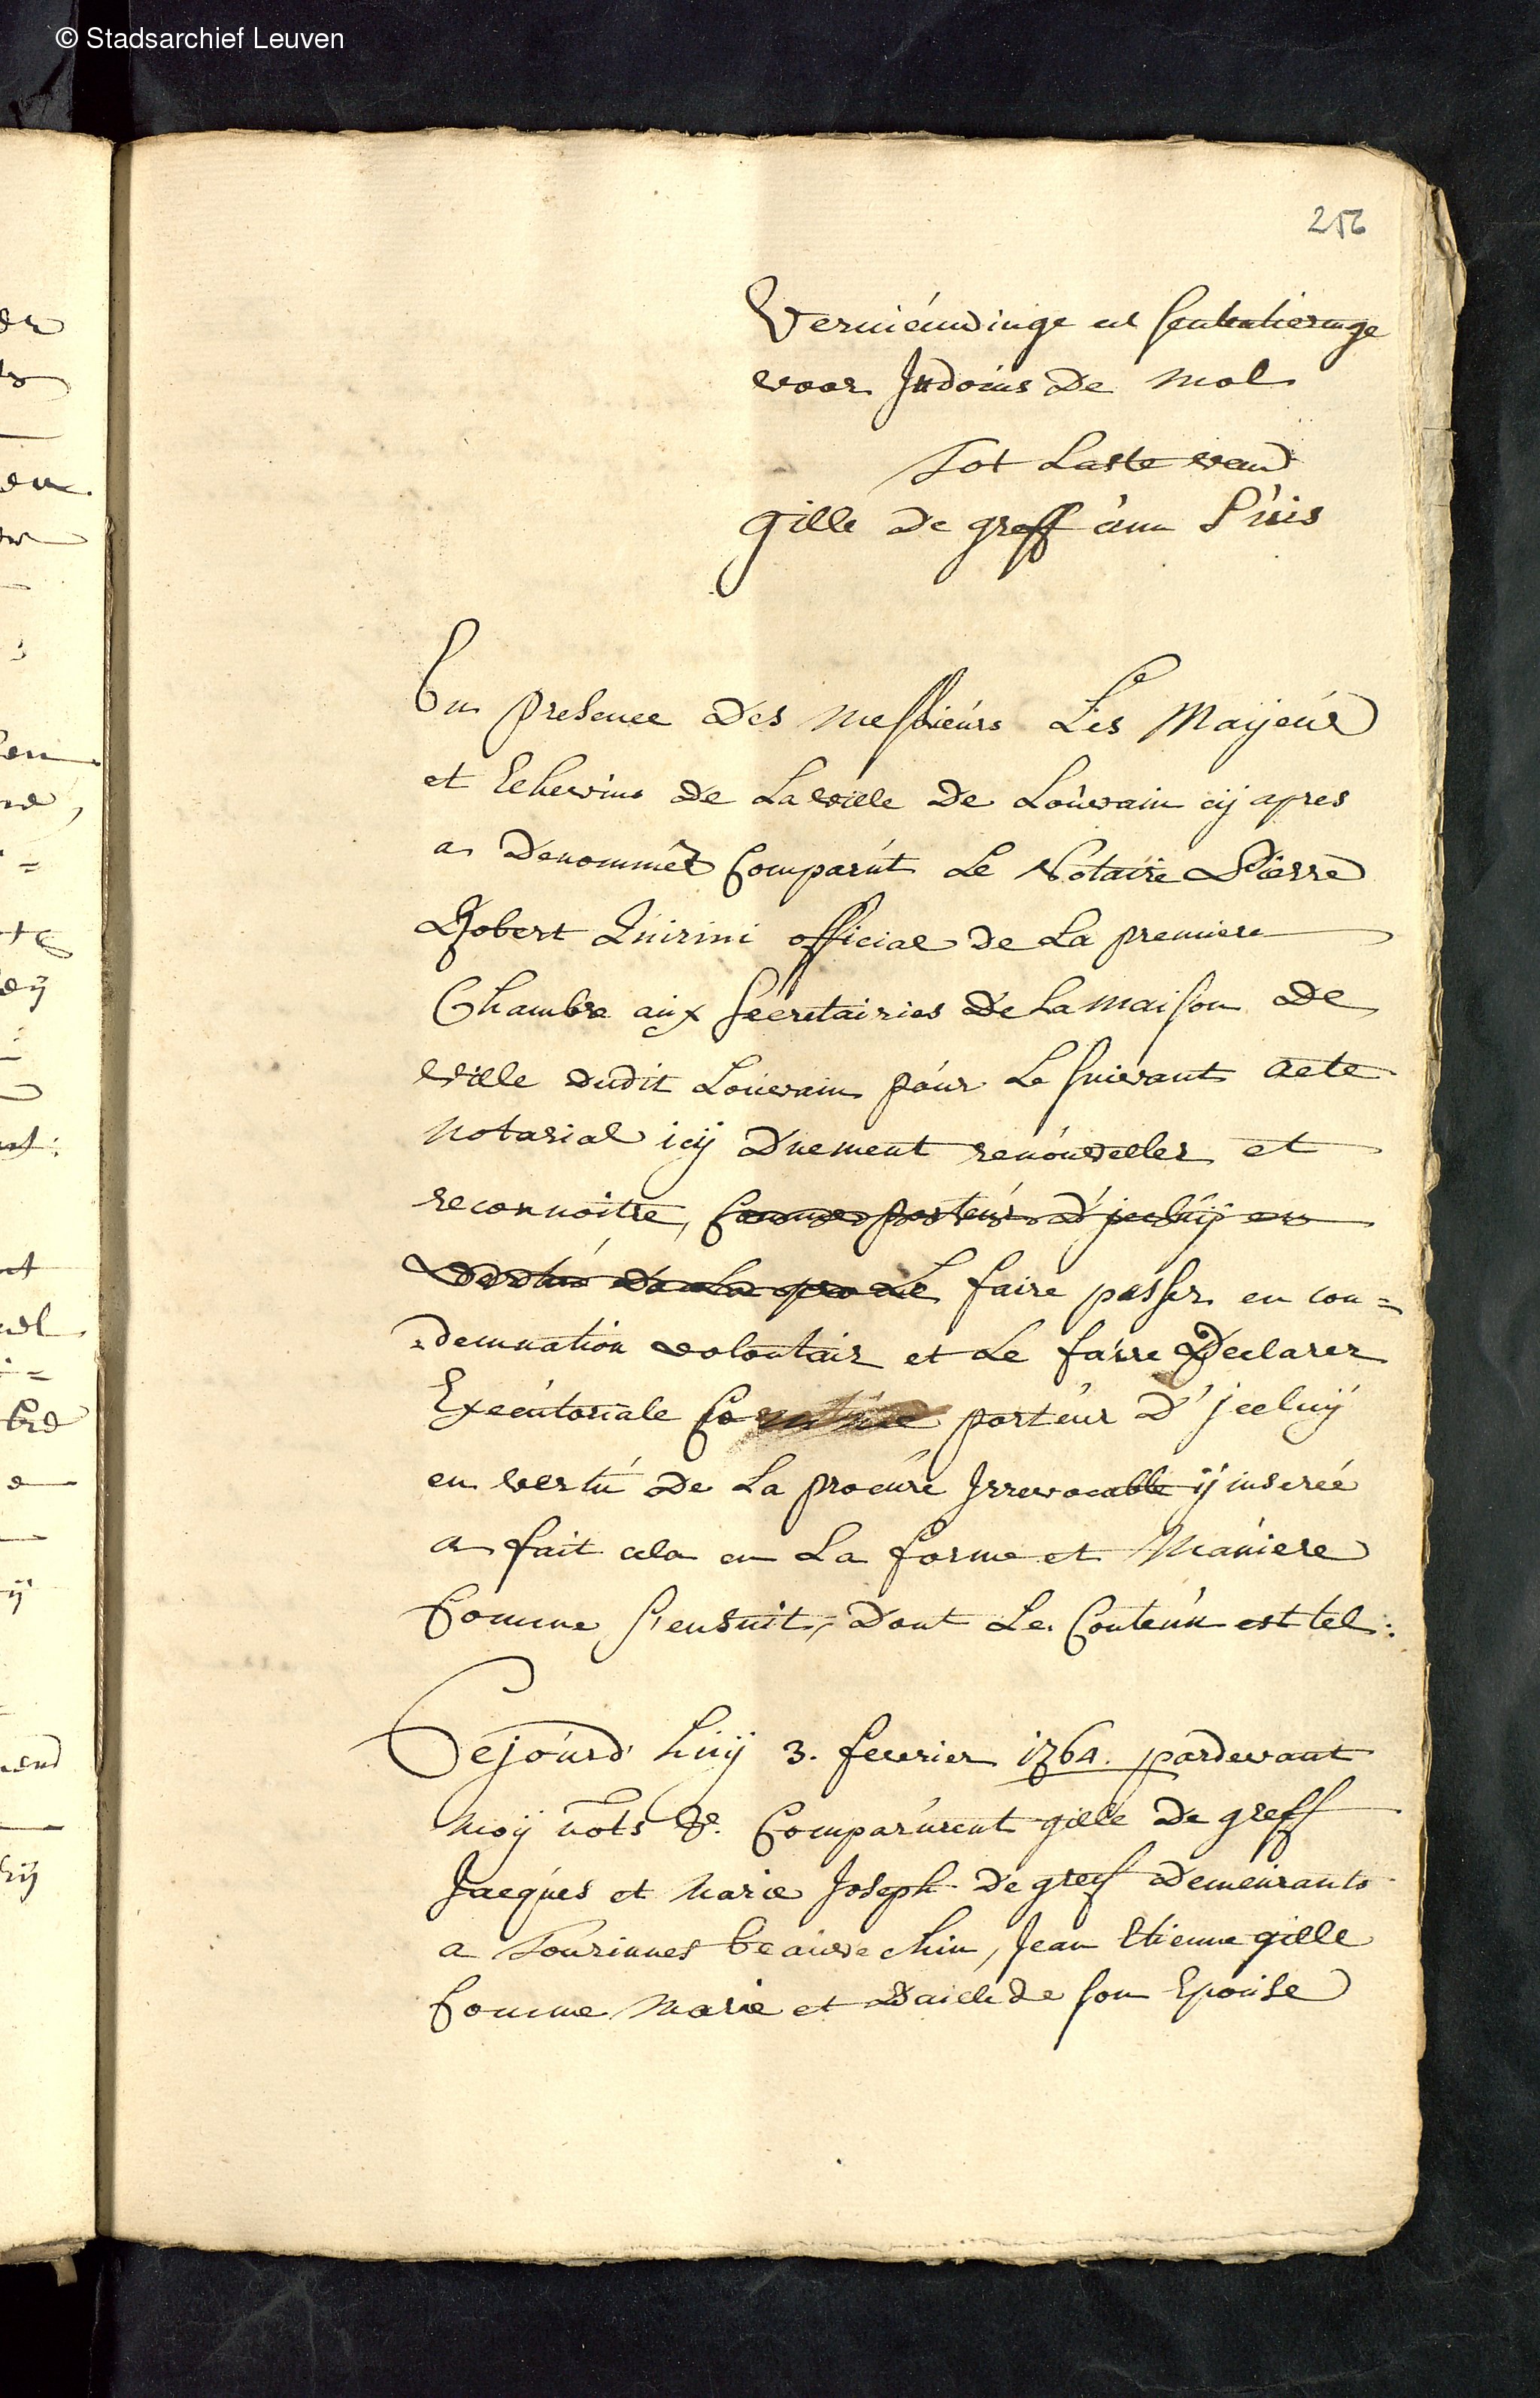 © Stadsarchief Leuven
256
Vernieuwinge en sententieringe
voor Judocus De Mol
Tot Laste van
gille de greff cum suis
En presence des Messieurs Les Mayeur
et Echevins de La ville de Louvain cij apres
a denommér Comparut Le Notaire Pierre
Robert Quirini official de La premiere
Chambre aux secretairies de La maison de
ville dudit Louvain pour Le suivant acte
notarial icij duement renouveller et
reconnoitre, comme porteur d'jceluij en
vertu de La pro Le faire passer en con=
=demnation volontair et Le faire Declarer
Executoriale comme porteur D'jceluij
en vertu De La procure Irrevocable ij inserée
a fait cela en La forme et Maniere
Comme s'ensuit, Dont Le Contenu est tel:
Cejourd'huij 3. fevrier 1764. pardevant
Moij nots &. Comparurent gille De greff
Jacques et Marie Joseph De greff Demeurants
a Tourinnes beauvechin, Jean Etienne gille
Comme Marie et Baiele de son Epouse